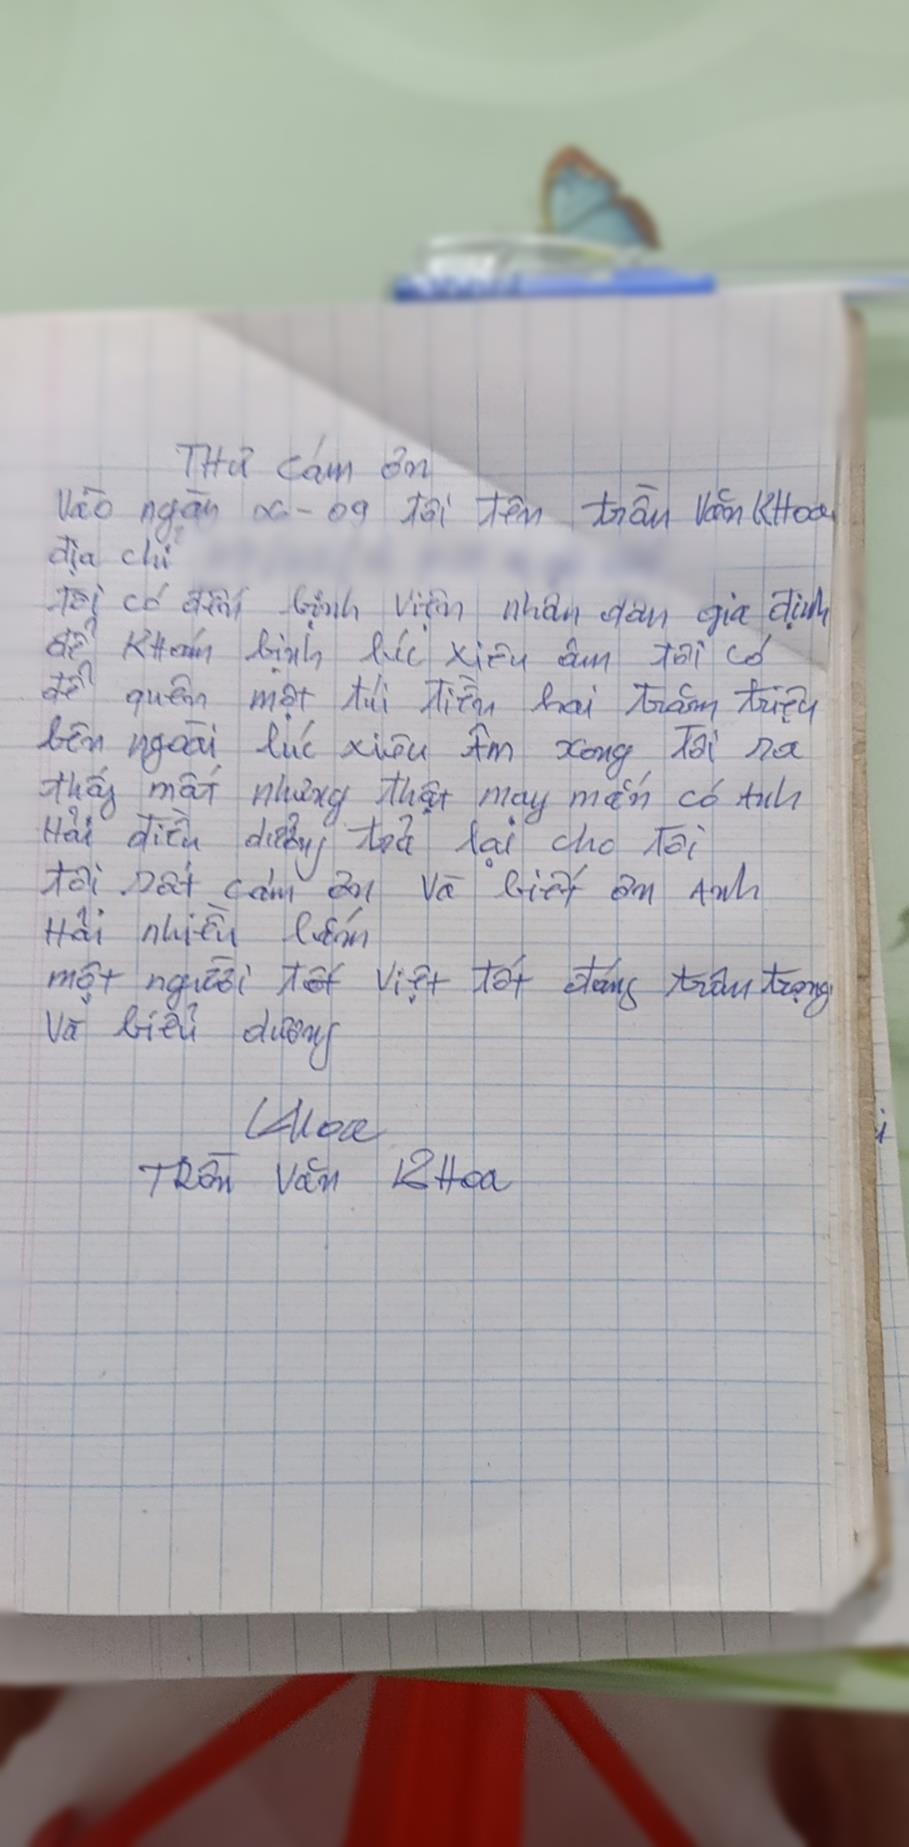 THƯ cám ơn
Vào ngày 02-09 tôi tên trần Văn KHoa
địa chỉ
tôi có đến bệnh viện nhân dân gia định
để KHám bệnh lúc xiêu âm tôi có
để quên một túi tiền hai trăm triệu
bên ngoài lúc xiêu Âm xong Tôi ra
thấy mất nhưng thật may mắn có Anh
Hải điều dưỡng trả lại cho Tôi
tôi rất cám ơn và biết ơn Anh
Hải nhiều lắm
một người tốt việt tốt đáng trân trọng
và biểu dương
Khoa
TRần Văn KHoa